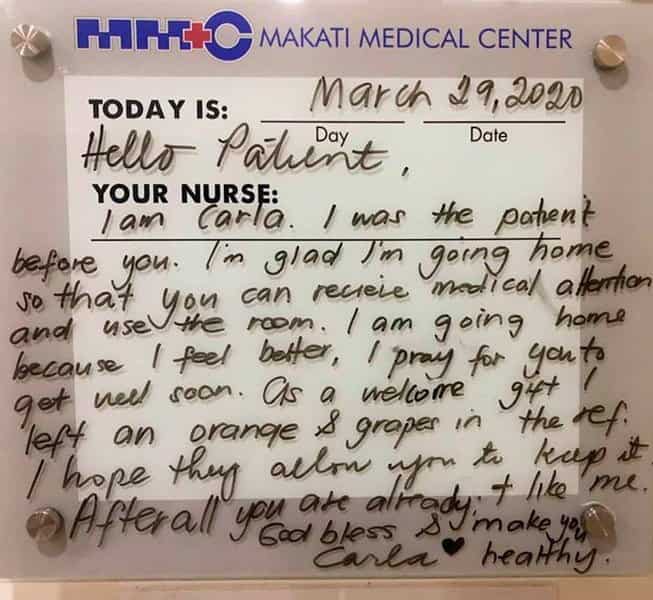 MMC MAKATI MEDICAL CENTER
TODAY IS: March 29, 2020
Day Date
Hello Patient,
YOUR NURSE:
I am Carla. I was the patient
before you. I'm glad I'm going home
so that you can recieve medical attention
and use the room. I am going home
because I feel better, I pray for you to
get well soon. As a welcome gift I
left an orange & grapes in the ref.
I hope they allow you to keep it.
After all you are already + like me.
God bless & make you
Carla ♥ healthy.